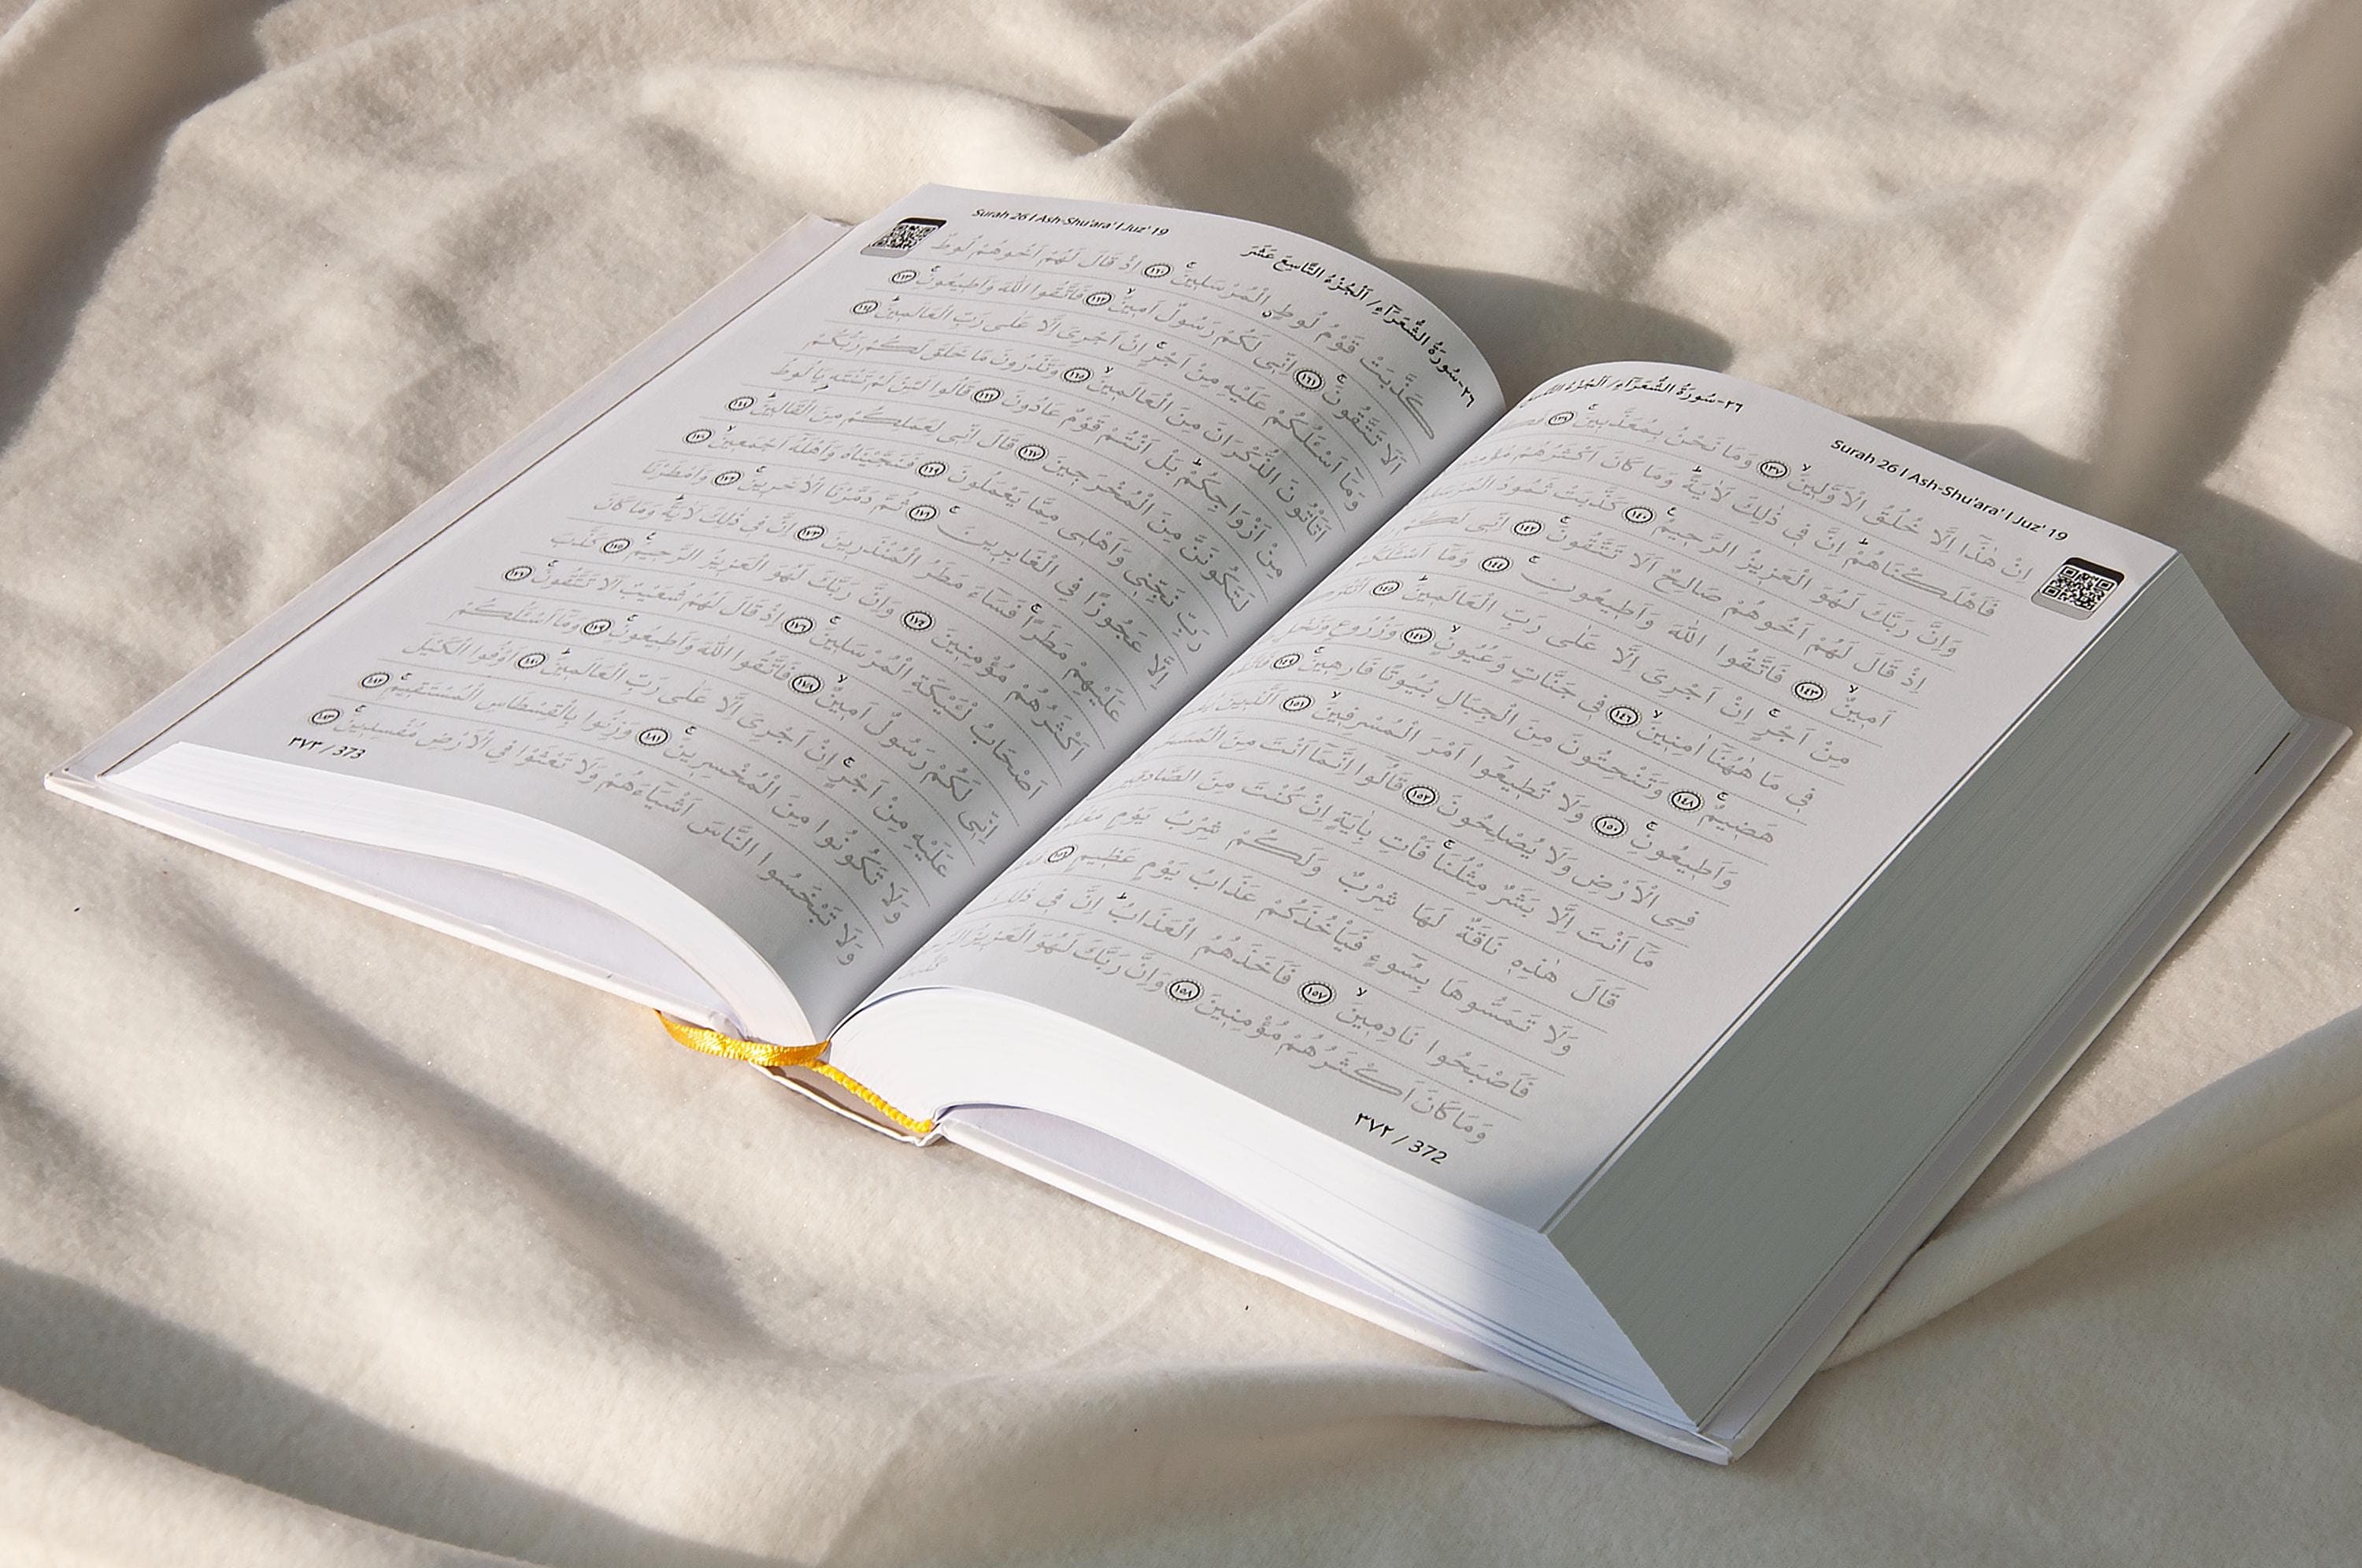 ٢٦-سُورَةُ الشُّعَرَاءِ/ اَلْجُزْءُ
Surah 26 I Ash-Shu'ara' I Juz' 19
اِنْ هٰذَٓا اِلَّا خُلُقُ الْاَوَّلِينَۙ ١٣٧ وَمَا نَحْنُ بِمُعَذَّبِينَۚ ١٣٨
فَاَهْلَكْنَاهُمْۜ اِنَّ فِي ذٰلِكَ لَاٰيَةًۜ وَمَا كَانَ اَكْثَرُهُمْ مُؤْمِنِينَ
وَاِنَّ رَبَّكَ لَهُوَ الْعَزِيزُ الرَّحِيمُ۟ ١٤٠ كَذَّبَتْ ثَمُودُ
اِذْ قَالَ لَهُمْ اَخُوهُمْ صَالِحٌ اَلَا تَتَّقُونَۚ ١٤٢ اِنِّي لَكُمْ
اَمِينٌۙ ١٤٣ فَاتَّقُوا اللّٰهَ وَاَطِيعُونِۚ ١٤٤ وَمَٓا اَسْـَٔلُكُمْ
مِنْ اَجْرٍۚ اِنْ اَجْرِيَ اِلَّا عَلٰى رَبِّ الْعَالَمِينَۜ ١٤٥
فِي مَا هٰهُنَٓا اٰمِنِينَۙ ١٤٦ فِي جَنَّاتٍ وَعُيُونٍۙ ١٤٧ وَزُرُوعٍ وَنَخْلٍ
هَضِيمٌۚ ١٤٨ وَتَنْحِتُونَ مِنَ الْجِبَالِ بُيُوتًا فَارِهِينَۚ ١٤٩
وَاَطِيعُونِۚ ١٥٠ وَلَا تُطِيعُٓوا اَمْرَ الْمُسْرِفِينَۙ ١٥١ اَلَّذِينَ
فِي الْاَرْضِ وَلَا يُصْلِحُونَ ١٥٢ قَالُٓوا اِنَّمَٓا اَنْتَ مِنَ
مَٓا اَنْتَ اِلَّا بَشَرٌ مِثْلُنَاۚ فَأْتِ بِاٰيَةٍ اِنْ كُنْتَ مِنَ
قَالَ هٰذِهِ نَاقَةٌ لَهَا شِرْبٌ وَلَكُمْ شِرْبُ يَوْمٍ
وَلَا تَمَسُّوهَا بِسُٓوءٍ فَيَأْخُذَكُمْ عَذَابُ يَوْمٍ عَظِيمٍ ١٥٦
فَاَصْبَحُوا نَادِمِينَۙ ١٥٧ فَاَخَذَهُمُ الْعَذَابُۜ اِنَّ فِي ذٰلِكَ
وَمَا كَانَ اَكْثَرُهُمْ مُؤْمِنِينَ ١٥٨ وَاِنَّ رَبَّكَ لَهُوَ الْعَزِيزُ
٣٧٢ / 372
٢٦-سُورَةُ الشُّعَرَٓاءِ/ اَلْجُزْءُ التَّاسِعَ عَشَرَ
Surah 26 I Ash-Shu'ara' I Juz' 19
كَذَّبَتْ قَوْمُ لُوطٍۨ الْمُرْسَلِينَۚ ١٦٠ اِذْ قَالَ لَهُمْ اَخُوهُمْ لُوطٌ
اَلَا تَتَّقُونَۚ ١٦١ اِنِّي لَكُمْ رَسُولٌ اَمِينٌۙ ١٦٢ فَاتَّقُوا اللّٰهَ وَاَطِيعُونِۚ ١٦٣
وَمَٓا اَسْـَٔلُكُمْ عَلَيْهِ مِنْ اَجْرٍۚ اِنْ اَجْرِيَ اِلَّا عَلٰى رَبِّ الْعَالَمِينَۜ ١٦٤
اَتَأْتُونَ الذُّكْرَانَ مِنَ الْعَالَمِينَۙ ١٦٥ وَتَذَرُونَ مَا خَلَقَ لَكُمْ رَبُّكُمْ
مِنْ اَزْوَاجِكُمْۜ بَلْ اَنْتُمْ قَوْمٌ عَادُونَ ١٦٦ قَالُوا لَئِنْ لَمْ تَنْتَهِ يَا لُوطُ
لَتَكُونَنَّ مِنَ الْمُخْرَجِينَ ١٦٧ قَالَ اِنِّي لِعَمَلِكُمْ مِنَ الْقَالِينَۜ ١٦٨
رَبِّ نَجِّنِي وَاَهْلِي مِمَّا يَعْمَلُونَ ١٦٩ فَنَجَّيْنَاهُ وَاَهْلَهُٓ اَجْمَعِينَۙ ١٧٠
اِلَّا عَجُوزًا فِي الْغَابِرِينَۚ ١٧١ ثُمَّ دَمَّرْنَا الْاٰخَرِينَۚ ١٧٢ وَاَمْطَرْنَا
عَلَيْهِمْ مَطَرًاۚ فَسَٓاءَ مَطَرُ الْمُنْذَرِينَ ١٧٣ اِنَّ فِي ذٰلِكَ لَاٰيَةًۜ وَمَا كَانَ
اَكْثَرُهُمْ مُؤْمِنِينَ ١٧٤ وَاِنَّ رَبَّكَ لَهُوَ الْعَزِيزُ الرَّحِيمُ۟ ١٧٥ كَذَّبَ
اَصْحَابُ لْـَٔيْكَةِ الْمُرْسَلِينَۚ ١٧٦ اِذْ قَالَ لَهُمْ شُعَيْبٌ اَلَا تَتَّقُونَۚ ١٧٧
اِنِّي لَكُمْ رَسُولٌ اَمِينٌۙ ١٧٨ فَاتَّقُوا اللّٰهَ وَاَطِيعُونِۚ ١٧٩ وَمَٓا اَسْـَٔلُكُمْ
عَلَيْهِ مِنْ اَجْرٍۚ اِنْ اَجْرِيَ اِلَّا عَلٰى رَبِّ الْعَالَمِينَۜ ١٨٠ اَوْفُوا الْكَيْلَ
وَلَا تَكُونُوا مِنَ الْمُخْسِرِينَۚ ١٨١ وَزِنُوا بِالْقِسْطَاسِ الْمُسْتَقِيمِۚ ١٨٢
وَلَا تَبْخَسُوا النَّاسَ اَشْيَٓاءَهُمْ وَلَا تَعْثَوْا فِي الْاَرْضِ مُفْسِدِينَۚ ١٨٣
٣٧٣ / 373